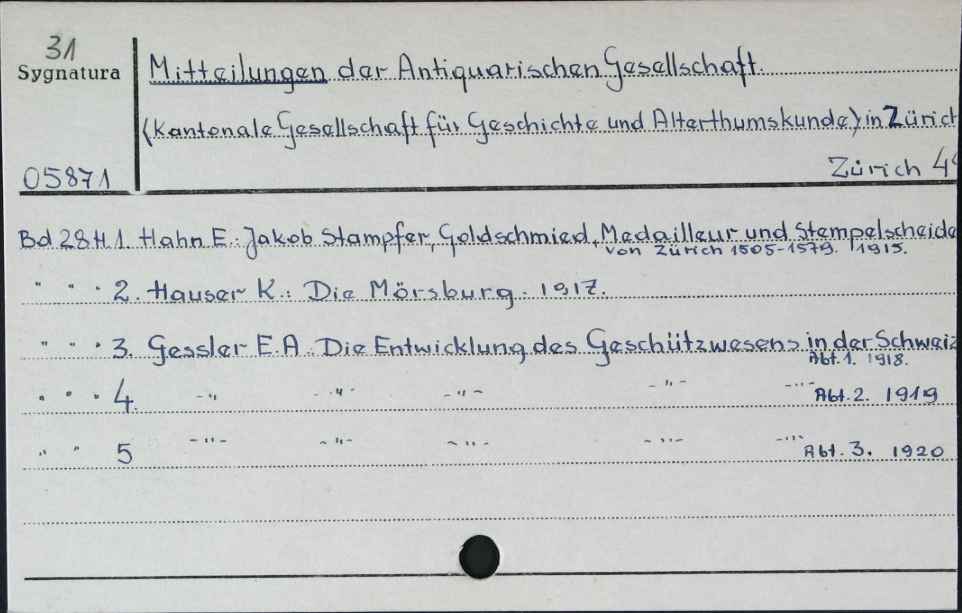 31
Sygnatura
Mitteilungen der Antiquarischen Gesellschaft.
(Kantonale Gesellschaft für Geschichte und Alterthumskunde) in Zürich
05871
Zürich 4
Bd 28 H 1. Hahn E.: Jakob Stampfer, Goldschmied, Medailleur und Stempelscheide
von Zürich 1505-1579. 1915.
" " " 2. Hauser K.: Die Mörsburg. 1917.
" " " 3. Gessler E.A.: Die Entwicklung des Geschützwesens in der Schweiz
Abt. 1. 1918.
" " " 4. -"- -"- -"- -"- -"- Abt. 2. 1919
" " 5 -"- -"- -"- -"- -"- Abt. 3. 1920